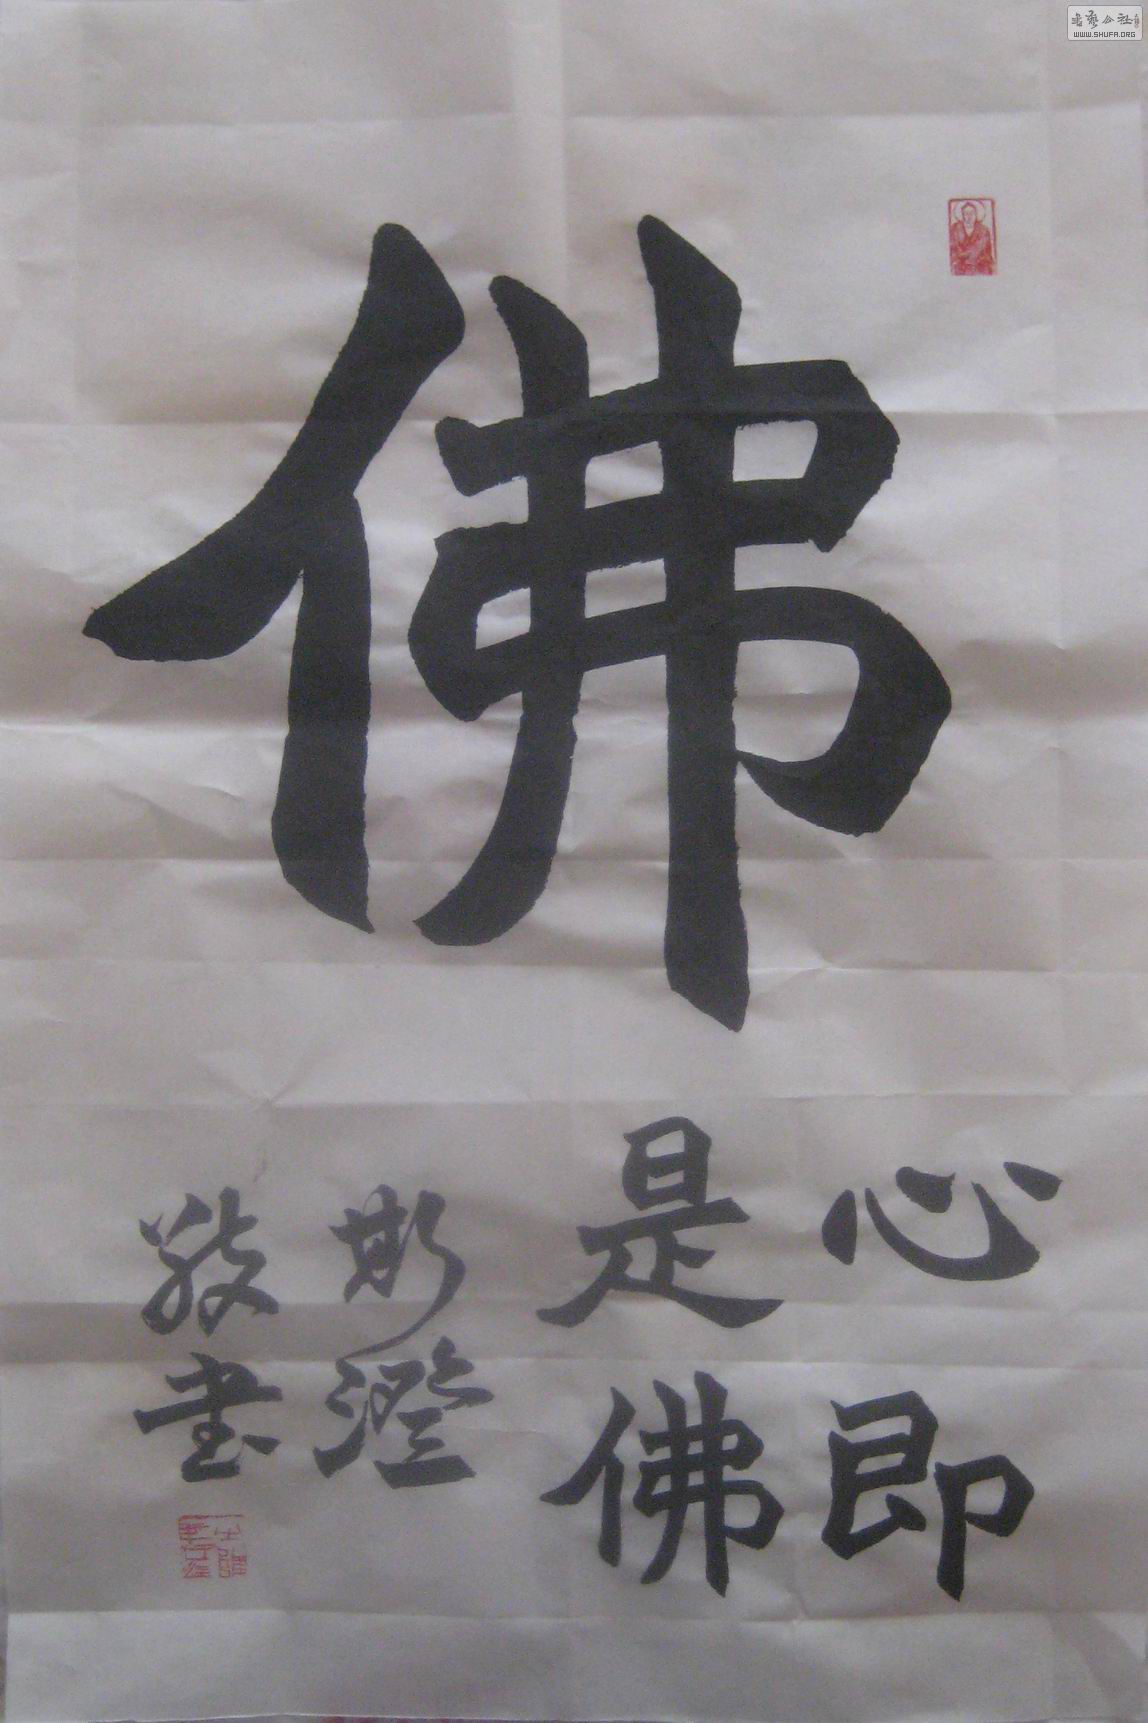 佛
心即
是佛
斯澄
敬书
书艺公社
WWW.SHUFA.ORG